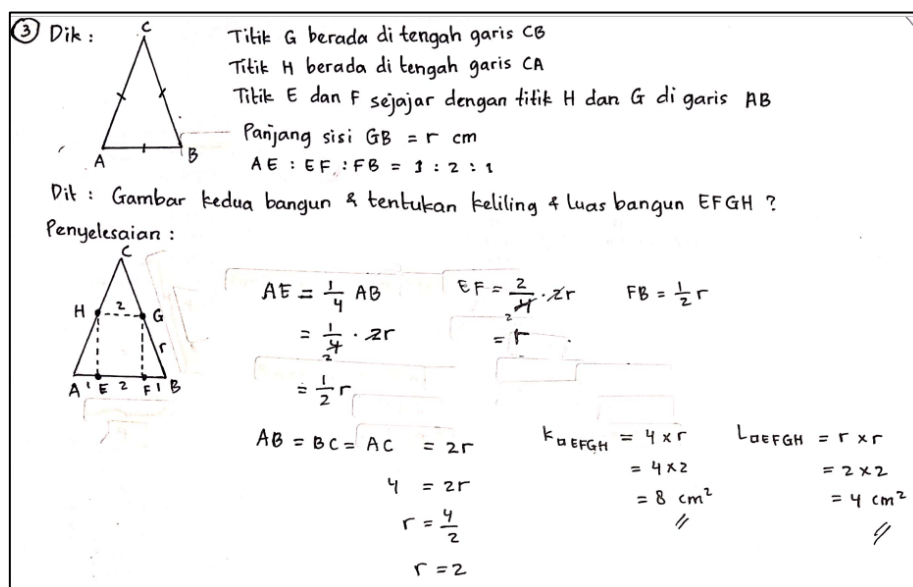 ③ Dik :
C
A
B
Titik G berada di tengah garis CB
Titik H berada di tengah garis CA
Titik E dan F sejajar dengan titik H dan G di garis AB
Panjang sisi GB = r cm
AE : EF : FB = 1 : 2 : 1
Dit : Gambar kedua bangun & tentukan keliling & luas bangun EFGH ?
Penyelesaian :
C
H 2 G
r
A 1 E 2 F 1 B
AE = 1/4 AB
= 1/4 · 2r
2
= 1/2 r
EF = 2/4 · 2r
2
= r
FB = 1/2 r
AB = BC = AC = 2r
4 = 2r
r = 4/2
r = 2
K□EFGH = 4 x r
= 4 x 2
= 8 cm²
L□EFGH = r x r
= 2 x 2
= 4 cm²